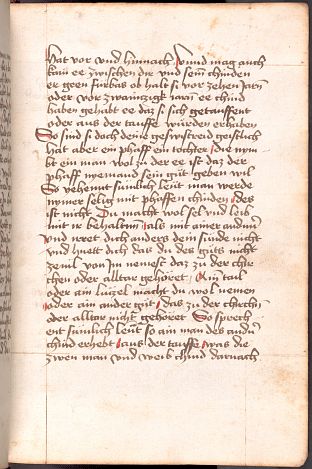 hat vor vnd hinnach vnd mag auch
kain ee zwischen dir vnd sein chinden
er geen furbas ob halt si vor zehen jarn
oder vor zwainczigk jarn ee chind
haben gehabt ee daz si sich getaufent
oder aus der tauffe wurden erhaben
So sind si doch deine geswistreid geistlich
hat aber ein phaff ein tochter die nym
bt ein man wol zu der ee ist daz der
phaff yemand sein gut geben wil
So vehemt sumlich leut man werde
ymmer selig mit phaffen chinden des
ist nicht Du macht wol sel vnd leib
mit ir behalten als mit ainer andern
vnd irret dich anders dein sunde nicht
vnd huett dich das du des guts nicht
zevil von im nemest daz zu der chir
chen oder alltar gehoret Ain tail
oder ain luzel macht du wol nemen
oder ain ander gut das zu der chirchn
oder alltar nicht gehoret So sprech
ent sumlich leut so ain man des andern
chind erhebt aus der tauffe was die
zwen man vnd weib chind darnach